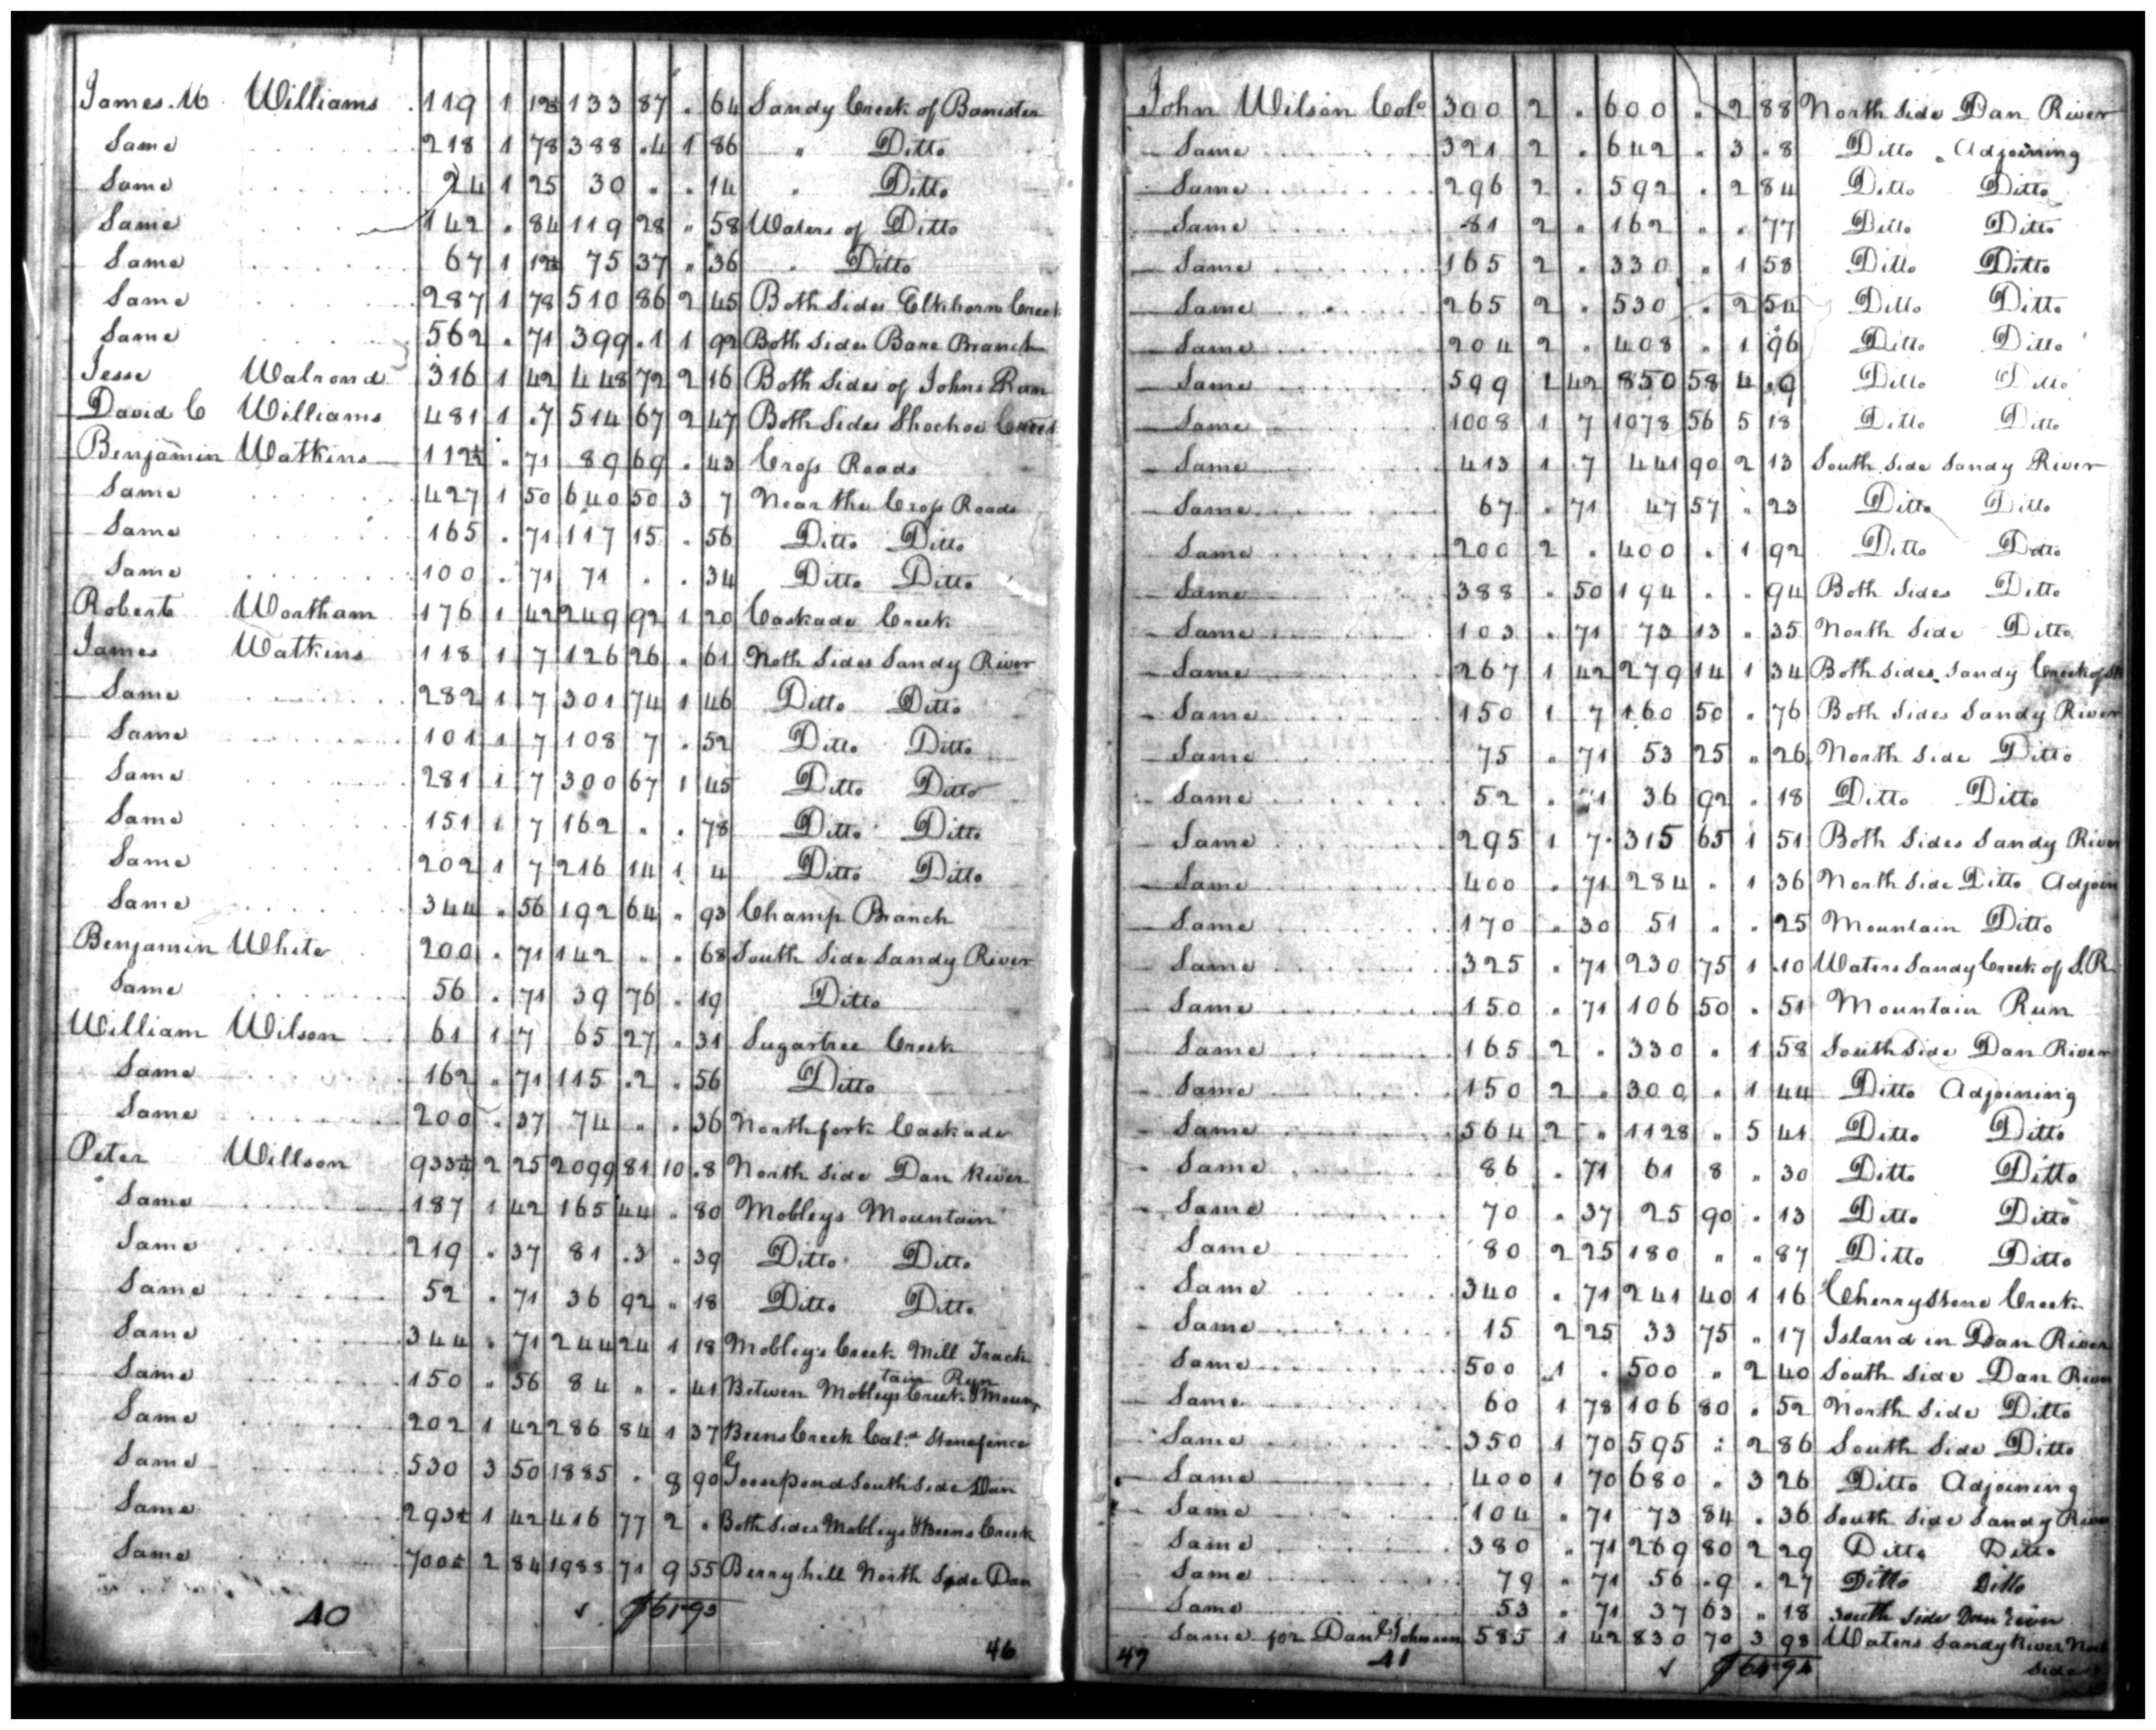 James M Williams . 119 1 12½ 133 87 . 64 Sandy Creek of Banister
Same 218 1 78 388 .4 1 86 " Ditto
Same 24 1 25 30 . . 14 " Ditto
Same 142 . 84 119 28 " 58 Waters of Ditto
Same 67 1 12½ 75 37 " 36 " Ditto
Same 287 1 78 510 86 2 45 Both Sides Elkhorn Creek
Same 562 . 71 399 .1 1 92 Both Sides Bare Branch
Jesse Walrond 316 1 42 448 72 2 16 Both Sides of Johns Run
David C Williams 481 1 .7 514 67 2 47 Both Sides Shochoe Creek
Benjamin Watkins 112½ . 71 89 69 . 43 Cross Roads
Same 427 1 50 640 50 3 7 Near the Cross Roads
Same 165 . 71 117 15 . 56 Ditto Ditto
Same 100 . 71 71 . . 34 Ditto Ditto
Robert Wortham 176 1 42 249 92 1 20 Caskade Creek
James Watkins 118 1 7 126 26 . 61 Noth Sides Sandy River
Same 282 1 7 301 74 1 46 Ditto Ditto
Same 101 1 7 108 7 . 52 Ditto Ditto
Same 281 1 7 300 67 1 45 Ditto Ditto
Same 151 1 7 162 . . 78 Ditto Ditto
Same 202 1 7 216 14 1 4 Ditto Ditto
Same 344 . 56 192 64 " 93 Champ Branch
Benjamin White 200 . 71 142 " . 68 South Side Sandy River
Same 56 . 71 39 76 . 19 Ditto
William Wilson 61 1 7 65 27 . 31 Sugartree Creek
Same 162 . 71 115 .2 . 56 Ditto
Same 200 . 37 74 " . 36 Northfork Caskade
Peter Willson 933½ 2 25 2099 81 10 .8 North Side Dan River
Same 187 1 42 165 44 . 80 Mobleys Mountain
Same 219 . 37 81 .3 " 39 Ditto Ditto
Same 52 . 71 36 92 " 18 Ditto Ditto
Same 344 . 71 244 24 1 18 Mobley's Creek Mill Track
Same 150 " 56 84 " . 41 Betwen Mobleys Creek & Moun
tain Run
Same 202 1 42 286 84 1 37 Beens Creek Cal.d Stonefence
Same 530 3 50 1885 . 8 90 Goosepond South Side Dan
Same 293½ 1 42 416 77 2 . Both Sides Mobleys & Beens Creek
Same 700½ 2 84 1988 71 9 55 Berryhill North Side Dan
40 ✓ $61-95
46
John Wilson Colo 300 2 . 600 . 2 88 North Side Dan River
Same 321 2 . 642 " 3 .8 Ditto . Adjoining
Same 296 2 . 592 . 2 84 Ditto Ditto
Same 81 2 " 162 " . 77 Ditto Ditto
Same 165 2 . 330 " 1 58 Ditto Ditto
Same 265 2 . 530 . 2 54 Ditto Ditto
Same 204 2 . 408 " 1 96 Ditto Ditto
Same 599 1 42 850 58 4 .9 Ditto Ditto
Same 1008 1 7 1078 56 5 18 Ditto Ditto
Same 413 1 7 441 90 2 13 South Side Sandy River
Same 67 . 71 47 57 . 23 Ditto Ditto
Same 200 2 . 400 . 1 92 Ditto Ditto
Same 388 . 50 194 . . 94 Both Sides Ditto
Same 103 . 71 73 13 . 35 North Side Ditto
Same 267 1 42 279 14 1 34 Both Sides Sandy Creek of
Same 150 1 7 160 50 . 76 Both Sides Sandy River
Same 75 " 71 53 25 " 26 North Side Ditto
Same 52 . 71 36 92 . 18 Ditto Ditto
Same 295 1 7 315 65 1 51 Both Sides Sandy River
Same 400 . 71 284 " 1 36 North Side Ditto Adjoin
Same 170 . 30 51 " . 25 Mountain Ditto
Same 325 . 71 230 75 1 .10 Waters Sandy Creek of S.R
Same 150 " 71 106 50 . 51 Mountain Run
Same 165 2 . 330 " 1 58 South Side Dan River
Same 150 2 . 300 " 1 44 Ditto Adjoining
Same 564 2 " 1128 " 5 41 Ditto Ditto
Same 86 . 71 61 8 " 30 Ditto Ditto
Same 70 . 37 25 90 . 13 Ditto Ditto
Same 80 2 25 180 " " 87 Ditto Ditto
Same 340 . 71 241 40 1 16 Cherrystone Creek
Same 15 2 25 33 75 " 17 Island in Dan River
Same 500 1 . 500 " 2 40 South Side Dan River
Same 60 1 78 106 80 . 52 North Side Ditto
Same 350 1 70 595 : 2 86 South Side Ditto
Same 400 1 70 680 " 3 26 Ditto Adjoining
Same 104 " 71 73 84 . 36 South Side Sandy River
Same 380 " 71 269 80 2 29 Ditto Ditto
Same 79 " 71 56 .9 . 27 Ditto Ditto
Same 53 " 71 37 63 " 18 South Side Dan River
Same for Danl Johnson 585 1 42 830 70 3 98 Waters Sandy River North
side
47 41 ✓ $64-94